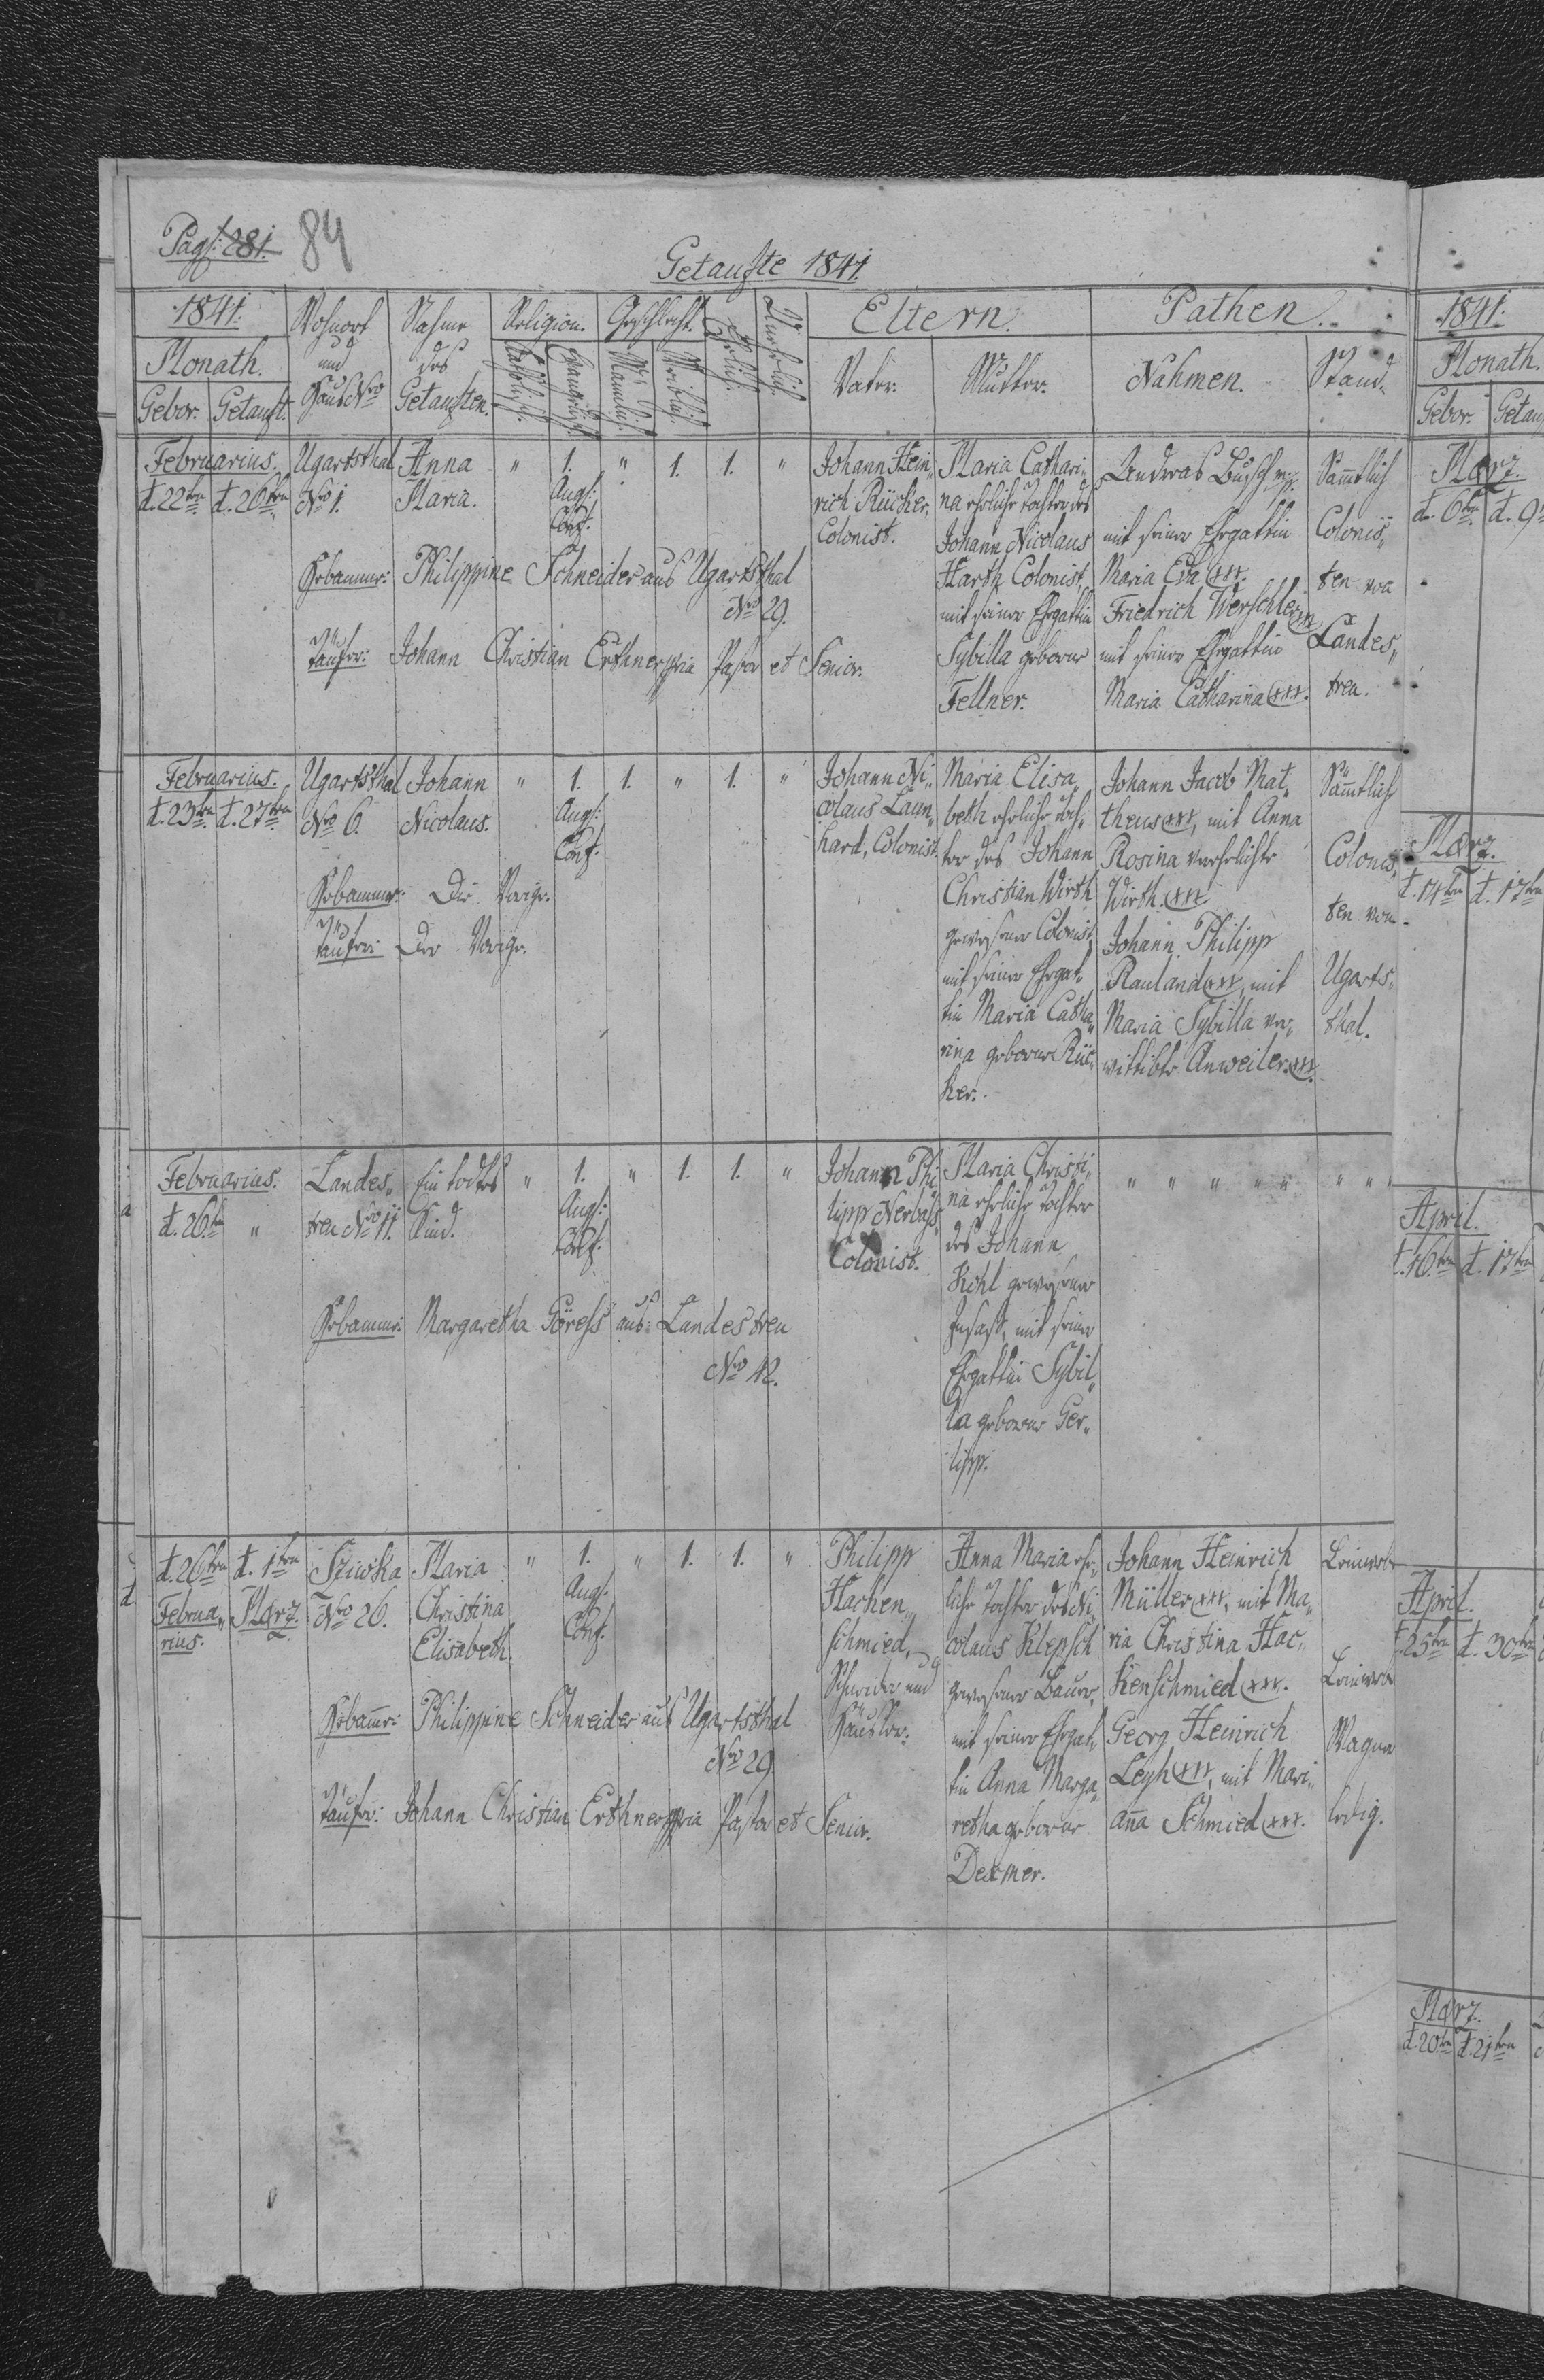 Pag: 281. 84
Getaufte 1841.
1841. Wohnort und Haus Nro Nahme des Getauften. Religion. Geschlecht. Ehelich. Unehelich. Eltern. Pathen.
Monath. Katholisch. Evangelisch. Männlich. Weiblich. Vater. Mutter. Nahmen. Stand.
Gebor. Getauft.
Februarius.
d. 22ten d. 26ten
Ugartsthal
Nro 1.
Anna
Maria.
" 1. " 1. 1. "
Augs:
Conf.
Johann Hein„
rich Rücker,
Colonist.
Maria Cathari„
na eheliche Tochter des
Johann Nicolaus
Harth Colonist,
mit seiner Ehegattin
Sybilla geborne
Fellner.
Andreas Busch
mit seiner Ehegattin
Maria Eva xxx.
Friedrich Werschler
mit seiner Ehegattin
Maria Catharina xxx.
Sämtlich
Colonis„
ten von
Landes„
treu.
Hebamme: Philippine Schneider aus Ugartsthal
Nro 29.
Taufer: Johann Christian Erthner ppia Pastor et Senior.
Februarius.
d. 23ten d. 27ten
Ugartsthal
Nro 6.
Johann
Nicolaus.
" 1. 1. " 1. "
Augs:
Conf.
Johann Ni„
colaus Laun„
hard, Colonist.
Maria Elisa„
beth eheliche Toch„
ter des Johann
Christian Wirth
gewesener Colonist,
mit seiner Ehegat„
tin Maria Catha„
rina geborne Rüc„
ker.
Johann Jacob Mat„
theus xxx, mit Anna
Rosina verehlichte
Wirth xxx.
Johann Philipp
Rauland xxx, mit
Maria Sybilla ver„
wittibte Anweiler xxx.
Sämtlich
Colonis„
ten von
Ugarts„
thal.
Hebamme: Die Vorige.
Taufer: Der Vorige.
Februarius.
d. 26ten "
Landes„
treu Nro 11.
Ein todtes
Kind.
" 1. " 1. 1. "
Augs:
Conf.
Johann Phi„
lipp Nerbass
Colonist.
Maria Christi„
na eheliche Tochter
des Johann
Kohl gewesener
Insass, mit seiner
Ehegattin Sybil„
la geborne Ger„
lipp.
" " " " " " " " "
Hebamme: Margaretha Göress aus Landestreu
Nro 12.
d. 26ten d. 1ten
Februa„ März.
rius.
Sziwka
Nro 26.
Maria
Christina
Elisabeth.
" 1. " 1. 1. "
Augs:
Conf.
Philipp
Hachen„
schmied,
Schneider und
Häusler.
Anna Maria ehe„
liche Tochter des Ni„
colaus Klepsch
gewesener Bauer,
mit seiner Ehegat„
tin Anna Marga„
retha geborne
Dexmer.
Johann Heinrich
Müller xxx, mit Ma„
ria Christina Hac„
kenschmied xxx.
Georg Heinrich
Leyh xxx, mit Mari„
aña Schmied xxx.
Leinweber
Wagner
ledig.
Hebamme: Philippine Schneider aus Ugartsthal
Nro 29
Taufer: Johann Christian Erthner ppia Pastor et Senior.
1841.
Monath.
Gebor. Getau
März.
d. 6ten d. 9
März.
d. 14ten d. 17ten
April.
d. 16ten d. 17ten
April.
d. 25ten d. 30ten
März.
d. 20ten d. 21ten